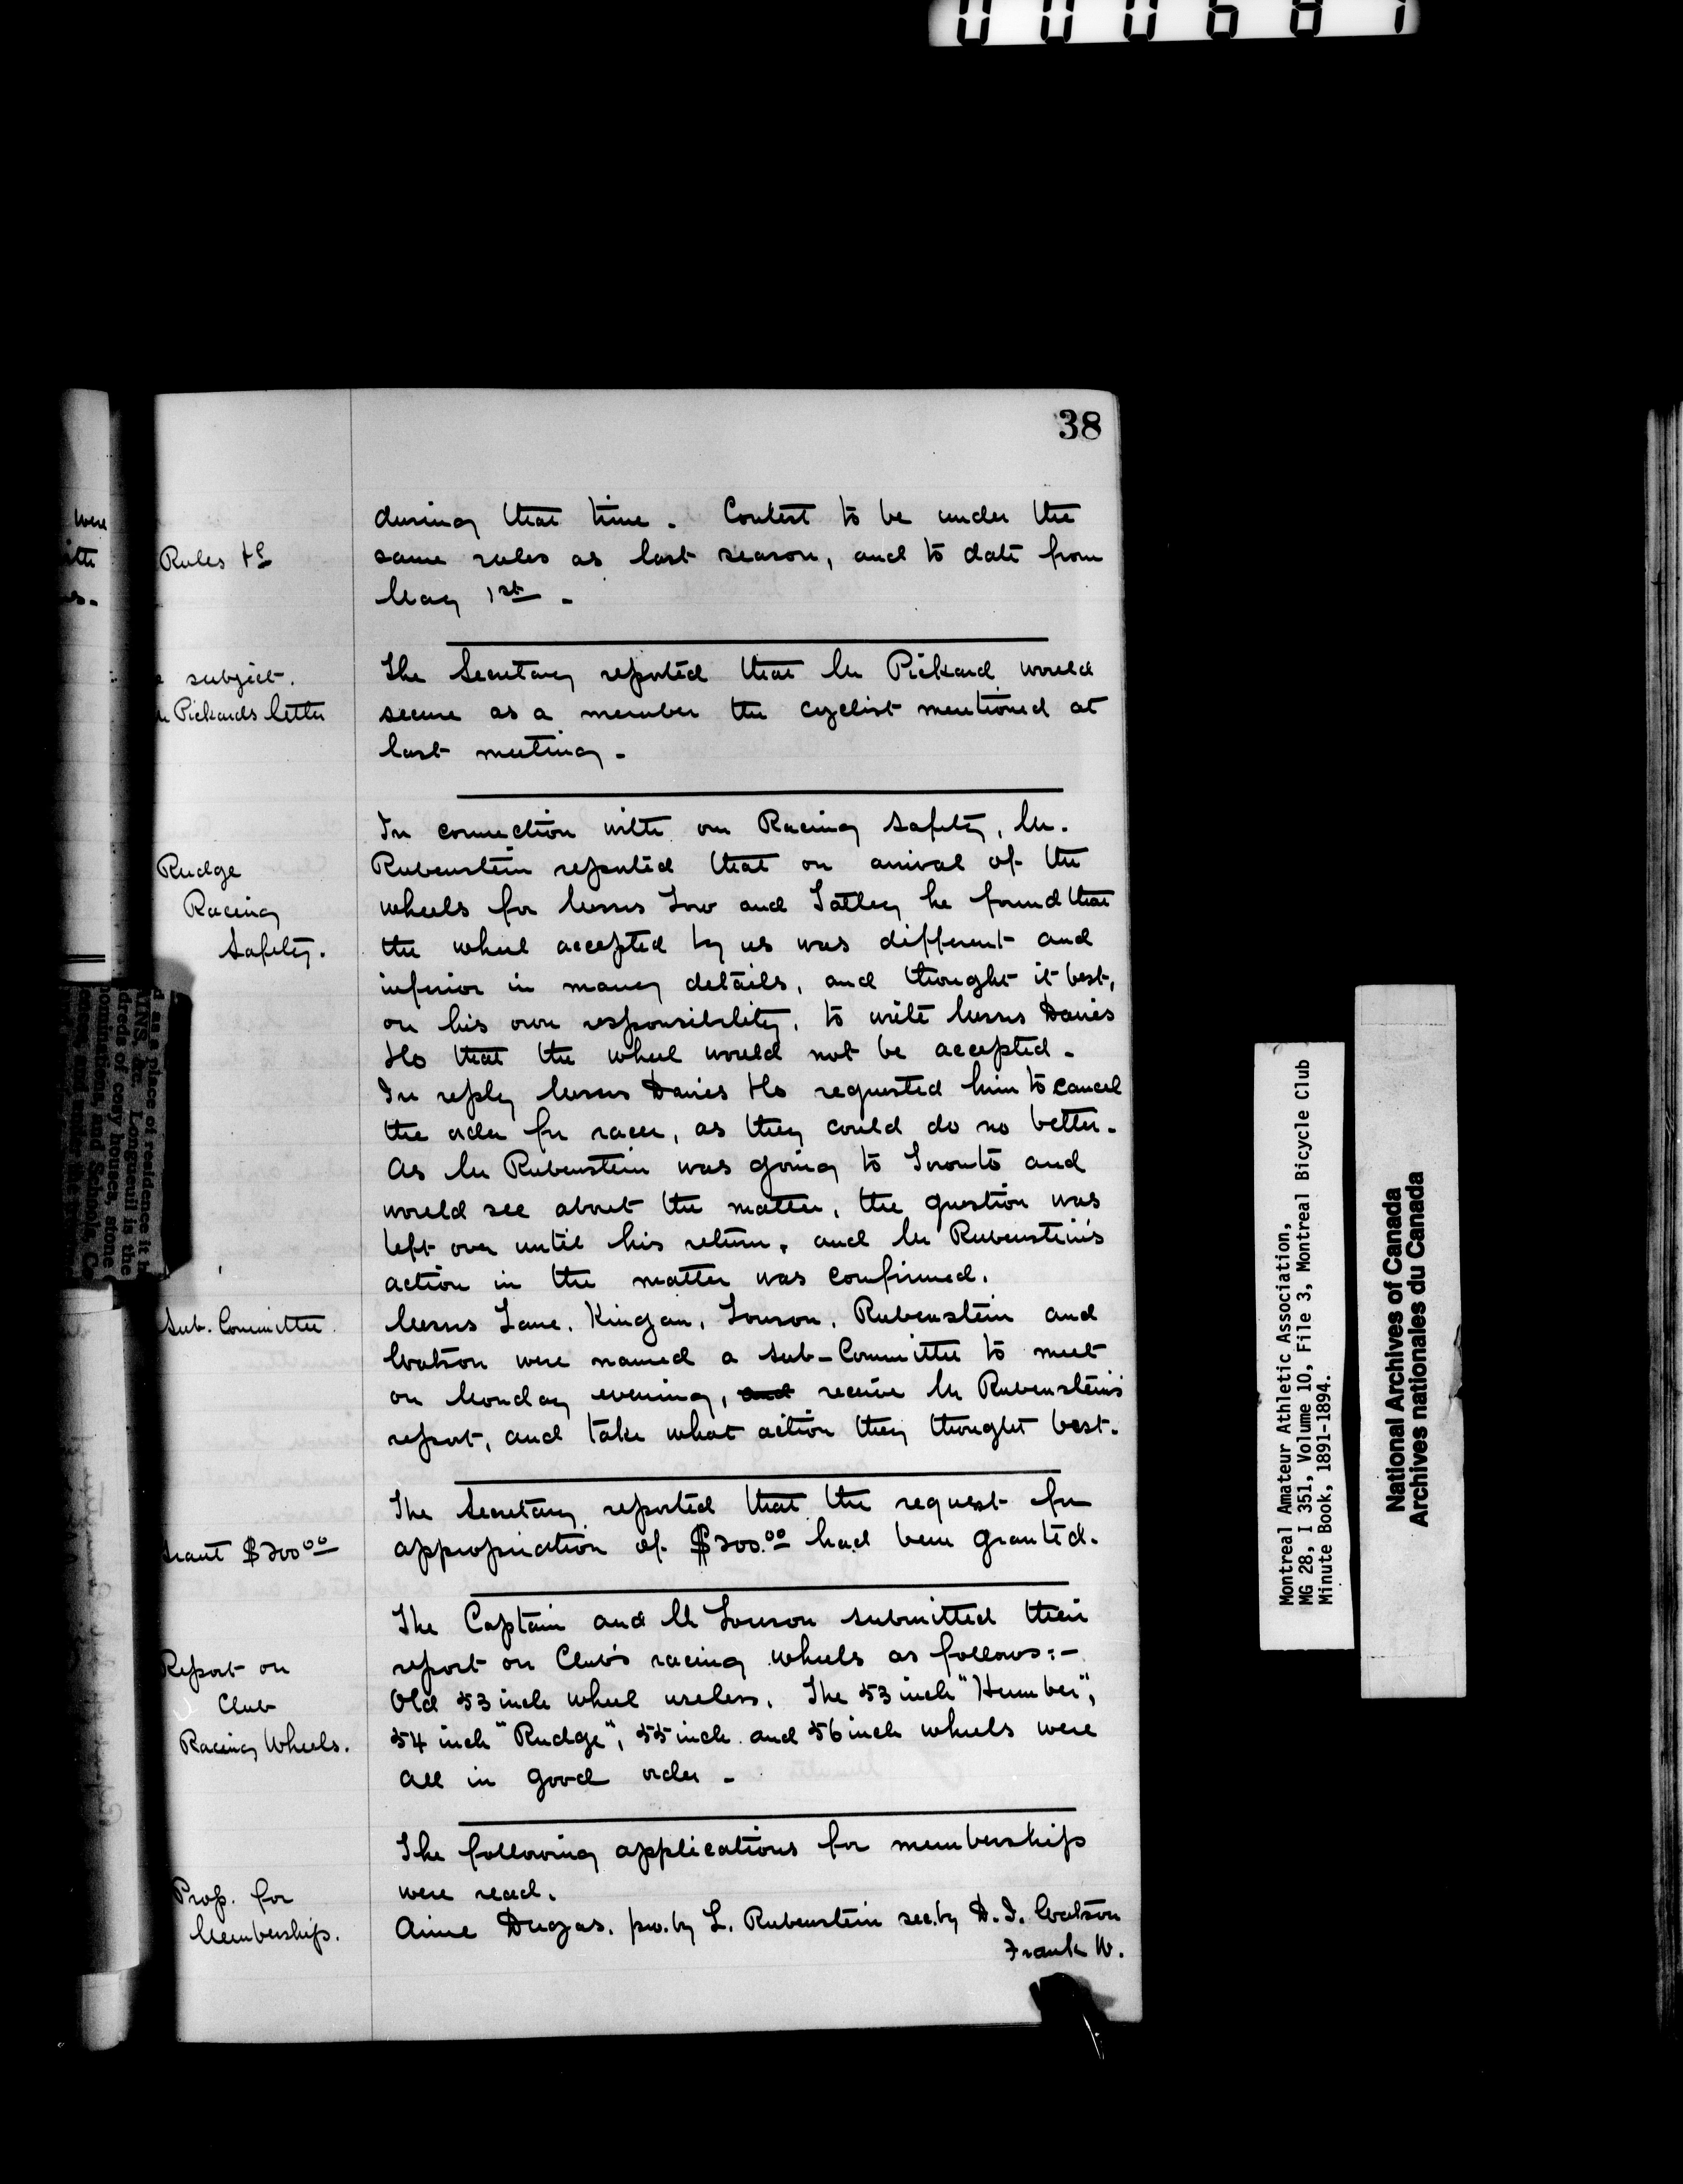 000687
38
during that time. Contest to be under the
Rules &c
same rules as last season, and to date from
May 1st.
The Secretary reported that Mr Pickard would
subject.
Pickards letter
secure as a member the cyclist mentioned at
last meeting.
In connection with our Racing Safety, Mr.
Rudge
Racing
Safety.
Rubenstein reported that on arrival of the
wheels for Messrs Low and Tatley he found that
the wheel accepted by us was different and
inferior in many details, and thought it best,
on his own responsibility, to write Messrs Davies
&Co that the wheel would not be accepted.
In reply Messrs Davies &Co requested him to cancel
the order for racer, as they could do no better.
As Mr Rubenstein was going to Toronto and
would see about the matter, the question was
left over until his return, and Mr Rubenstein's
action in the matter was confirmed.
Sub. Committee
Messrs Lane, Kingan, Louson, Rubenstein and
Watson were named a Sub-Committee to meet
on Monday evening, and receive Mr Rubenstein's
report, and take what action they thought best.
The Secretary reported that the request for
Grant $200.00
appropriation of $200.00 had been granted.
The Captain and Mr Louson submitted their
Report on
Club
Racing Wheels.
report on Club's racing wheels as follows:-
Old 53 inch wheel useless. The 53 inch "Humber",
54 inch "Rudge", 55 inch and 56 inch wheels were
all in good order.
The following applications for membership
Prop. for
Membership.
were read.
Aime Dugas. pro. by L. Rubenstein sec. by D. J. Watson
Frank W.
were
with
place of residence it
&c. Longueuil is the
dreds of cosy houses, stone
ominations, and Schools, C
Montreal Amateur Athletic Association,
MG 28, I 351, Volume 10, File 3, Montreal Bicycle Club
Minute Book, 1891-1894.
National Archives of Canada
Archives nationales du Canada